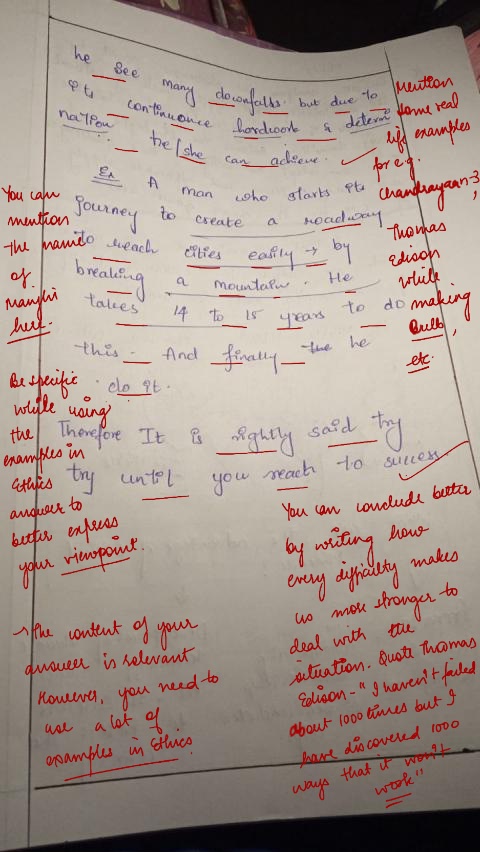 he see many downfalls. but due to
its continuance hardwork & determi
nation. he/she can achieve.
Ex A man who starts its
journey to create a roadway
to reach cities easily → by
breaking a mountain. He
takes 14 to 15 years to do
this. And finally the he
do it.
Therefore It is rightly said try
try until you reach to success
Mention
some real
life examples
for e.g.
Chandrayaan-3,
Thomas
Edison
while
making
Bulb,
etc.
You can
mention
the name
of
Manjhi
here.
Be specific
while using
the
examples in
Ethics
answer to
better express
your viewpoint.
→ The content of your
answer is relevant
However, you need to
use a lot of
examples in Ethics
You can conclude better
by writing how
every difficulty makes
us more stronger to
deal with the
situation. Quote Thomas
Edison - "I haven't failed
about 1000 times but I
have discovered 1000
ways that it won't
work"